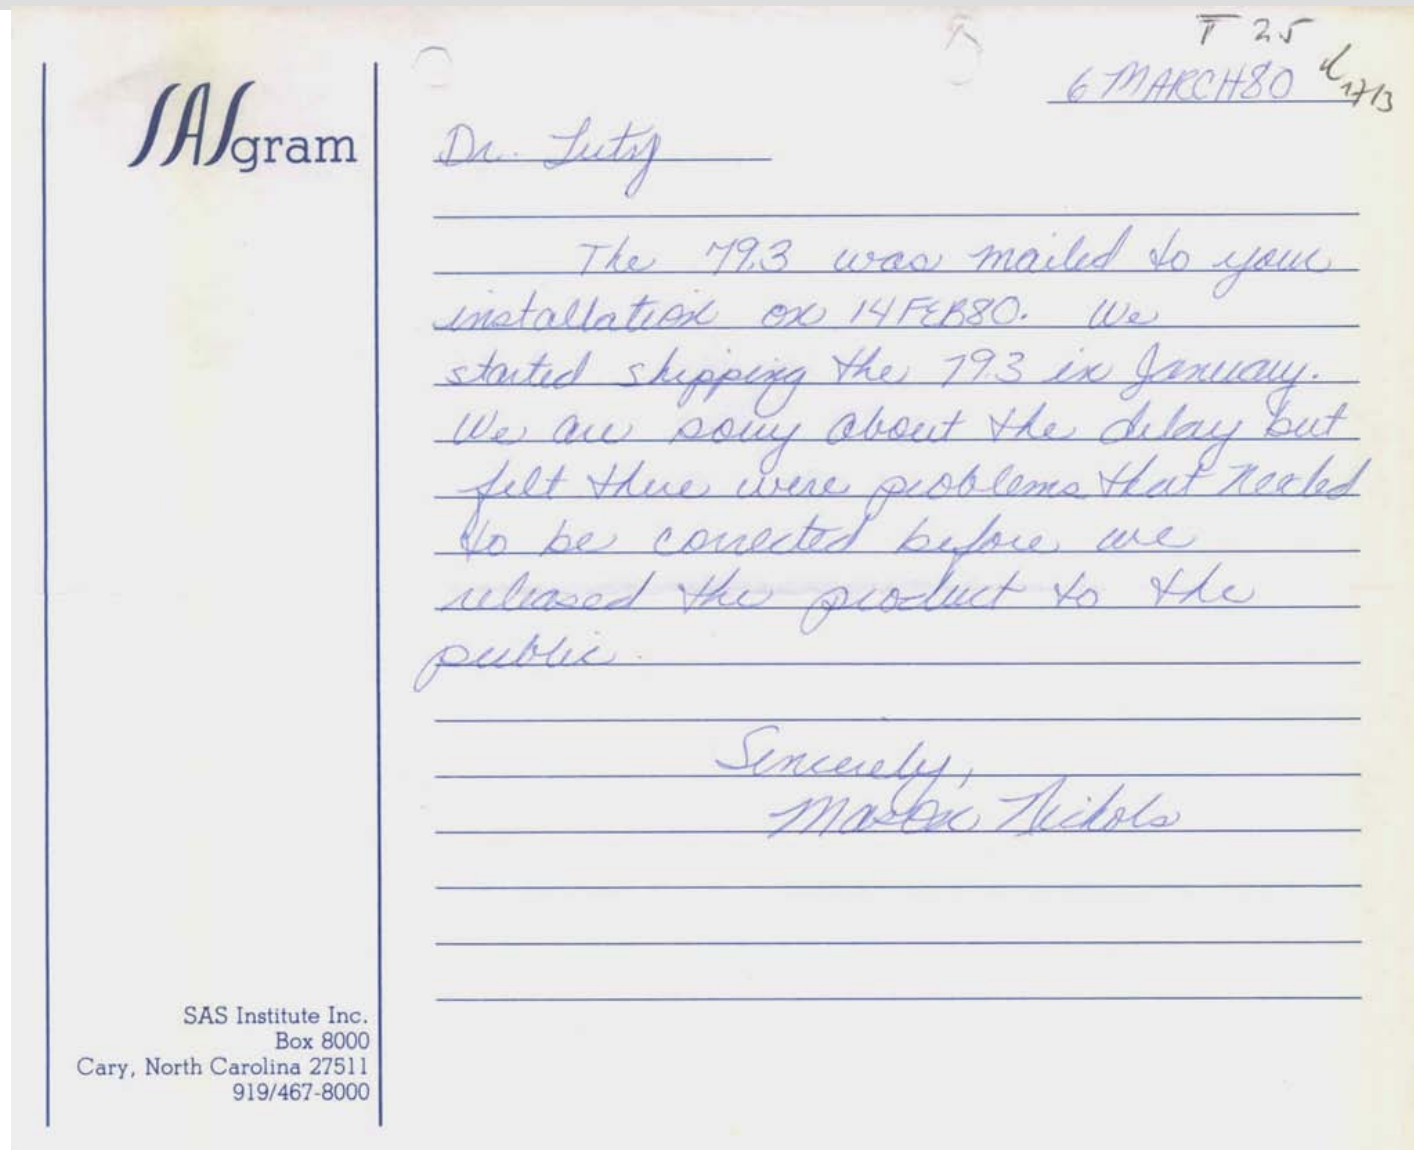 T 25
6 MARCH 80
17/3
SASgram
Dr. Lutz
The 79.3 was mailed to your
installation on 14FEB80. We
started shipping the 79.3 in January.
We are sorry about the delay but
felt there were problems that needed
to be corrected before we
released the product to the
public.
Sincerely,
Mason Nichols
SAS Institute Inc.
Box 8000
Cary, North Carolina 27511
919/467-8000